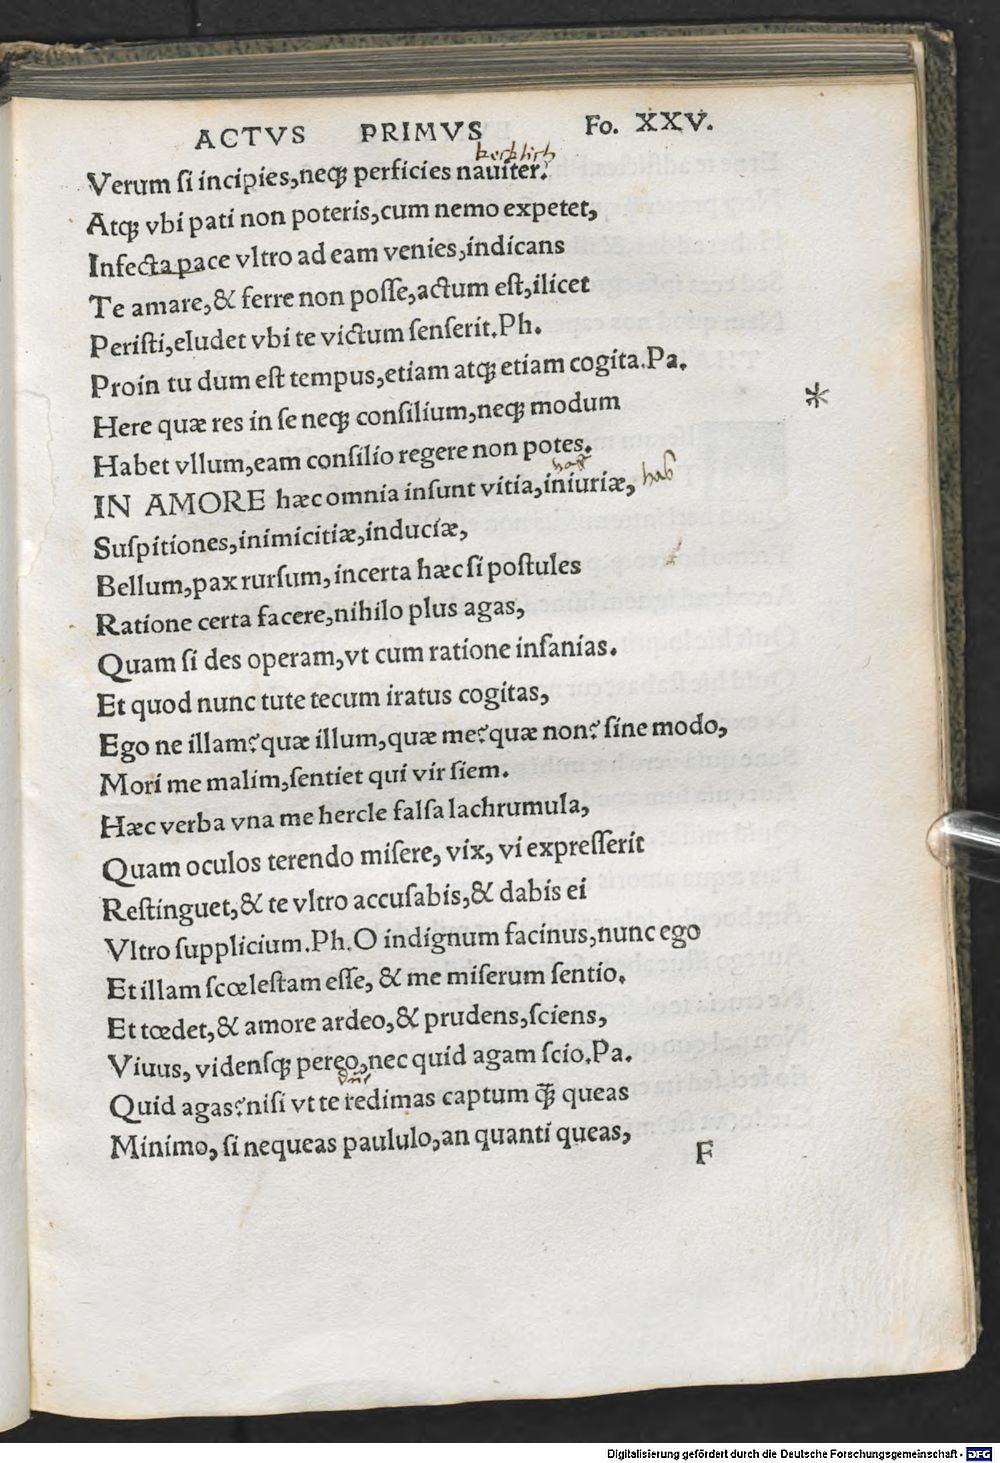 ACTVS PRIMVS Fo. XXV.
kecklich
Verum ſi incipies,neqꝫ perficies nauiter.
Atqꝫ vbi pati non poteris,cum nemo expetet,
Infecta pace vltro ad eam venies,indicans
Te amare,& ferre non poſſe,actum eſt,ilicet
Periſti,eludet vbi te victum ſenſerit.Ph.
Proin tu dum eſt tempus,etiam atqꝫ etiam cogita.Pa.
Here quæ res in ſe neqꝫ conſilium,neqꝫ modum
*
Habet vllum,eam conſilio regere non potes.
IN AMORE hæc omnia inſunt vitia,iniuriæ,
Suſpitiones,inimicitiæ,induciæ,
Bellum,pax rurſum,incerta hæc ſi poſtules
Ratione certa facere,nihilo plus agas,
Quam ſi des operam,vt cum ratione inſanias.
Et quod nunc tute tecum iratus cogitas,
Ego ne illam?quæ illum,quæ me?quæ non? ſine modo,
Mori me malim,ſentiet qui vir ſiem.
Hæc verba vna me hercle falſa lachrumula,
Quam oculos terendo miſere, vix, vi expreſſerit
Reſtinguet,& te vltro accuſabis,& dabis ei
Vltro ſupplicium.Ph.O indignum facinus,nunc ego
Et illam ſcœleſtam eſſe, & me miſerum ſentio.
Et tœdet,& amore ardeo,& prudens,ſciens,
Viuus, videnſqꝫ pereo,nec quid agam ſcio.Pa.
Quid agas?niſi vt te redimas captum qꝫ̃ queas
Minimo, ſi nequeas paululo,an quanti queas,
F
Digitalisierung gefördert durch die Deutsche Forschungsgemeinschaft - DFG